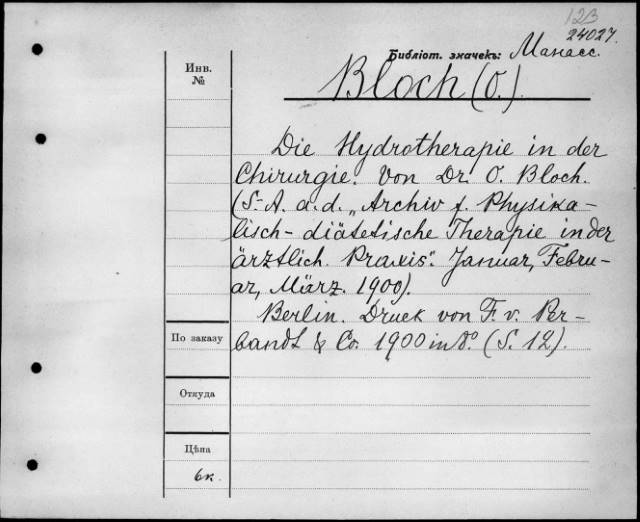 123
24027.
Библіот. значекъ: Манасс.
Инв.
№
Bloch (O.)
Die Hydrotherapie in der
Chirurgie. Von Dr. O. Bloch.
(S.-A. a. d. „Archiv f. Physika-
lisch-diätetische Therapie in der
ärztlich. Praxis": Januar, Febru-
ar, März. 1900).
Berlin. Druck von F. v. Per-
bandt & Co. 1900 in 8º. (S. 12).
По заказу
Откуда
Цѣна
6к.